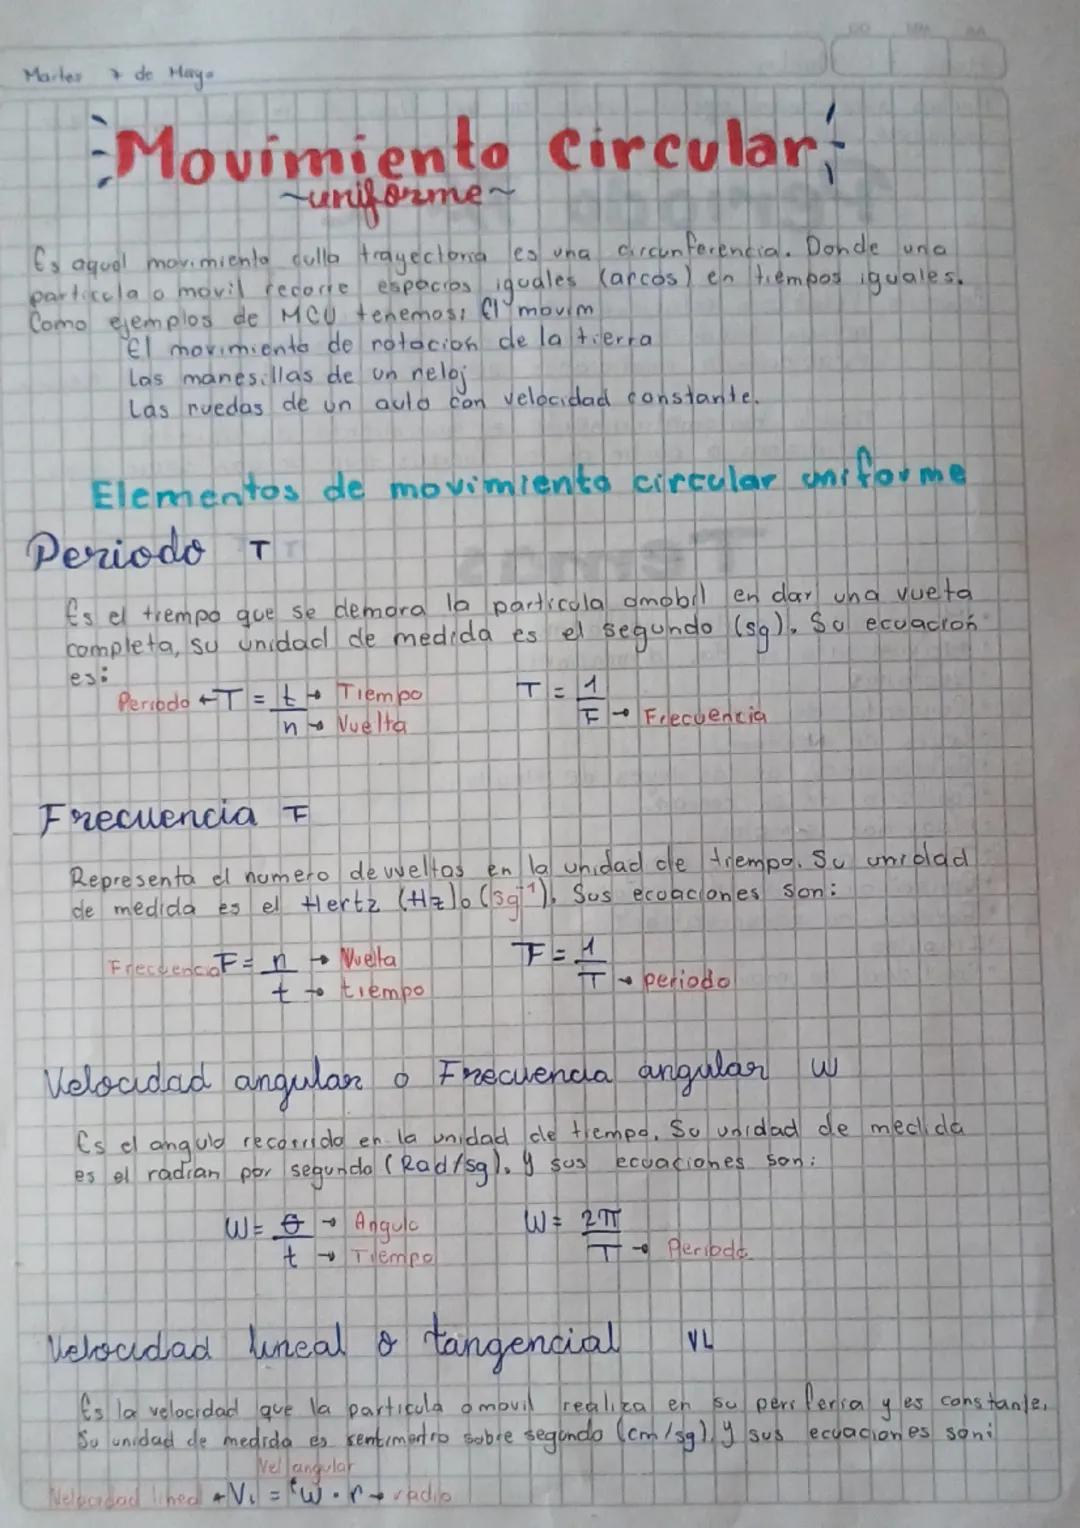 Martes 7 de Mayo
Movimiento Circular
~uniforme~
Es aquel movimiento culla trayectoria es una circunferencia. Donde una
particula o movil recorre espacios iguales (arcos) en tiempos iguales.
Como ejemplos de MCU tenemos: El movim
El movimiento de rotacion de la tierra
Las manesillas de un reloj
Las ruedas de un auto con velocidad constante.
Elementos de movimiento circular uniforme
Periodo T
Es el tiempo que se demora la particula omobil en dar una vueta
completa, su unidad de medida es el segundo (sg). Su ecuacion
es:
Periodo ← T = t → Tiempo T = 1
n → Vuelta F → Frecuencia
Frecuencia F
Representa el numero de vueltas en la unidad de tiempo. Su unidad
de medida es el Hertz (Hz) o (sg⁻¹). Sus ecuaciones son:
Frecuencia F = n → Vuelta F = 1
t → tiempo T → periodo
Velocidad angular o Frecuencia angular W
Es el angulo recorrido en la unidad de tiempo. Su unidad de medida
es el radian por segundo (Rad/sg). y sus ecuaciones son:
W = θ → Angulo W = 2π
t → Tiempo T → Periodo
Velocidad lineal o tangencial VL
Es la velocidad que la particula o movil realiza en su periferia y es constante.
Su unidad de medida es sentimentro sobre segundo (cm/sg) y sus ecuaciones son:
Vel angular
Velocidad lineal ← VL = W · r → radio